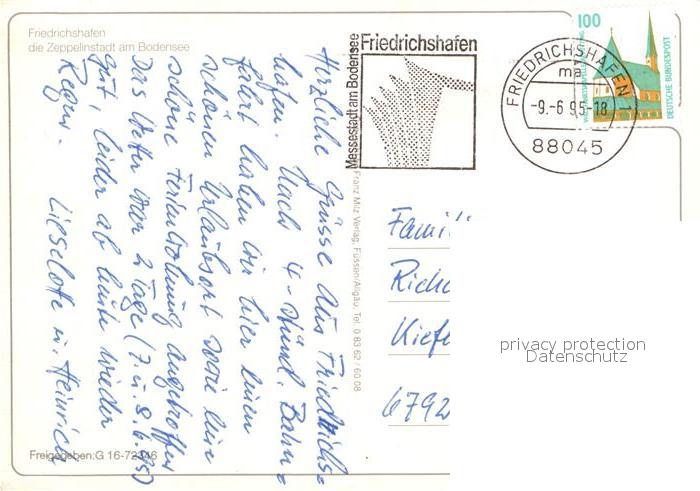 Friedrichshafen
die Zeppelinstadt am Bodensee
Herzliche Grüsse aus Friedrichs-
hafen. Nach 4-stünd. Bahn-
fahrt haben wir hier einen
schönen Urlaubsort sowie eine
schöne Ferienwohnung angetroffen
Das Wetter war 2 Tage (7. u. 8.6.95)
gut leider ab heute wieder
Regen.
Lieselotte u. Heinrich
Freigegeben: G 16-72346
Franz Milz Verlag, Füssen/Allgäu, Tel. 0 83 62 / 60 08
Messestadt am Bodensee
Friedrichshafen
FRIEDRICHSHAFEN 1
ma
-9.-6.95-18
88045
100
DEUTSCHE BUNDESPOST
Famili
Richa
Kiefe
6792
privacy protection
Datenschutz